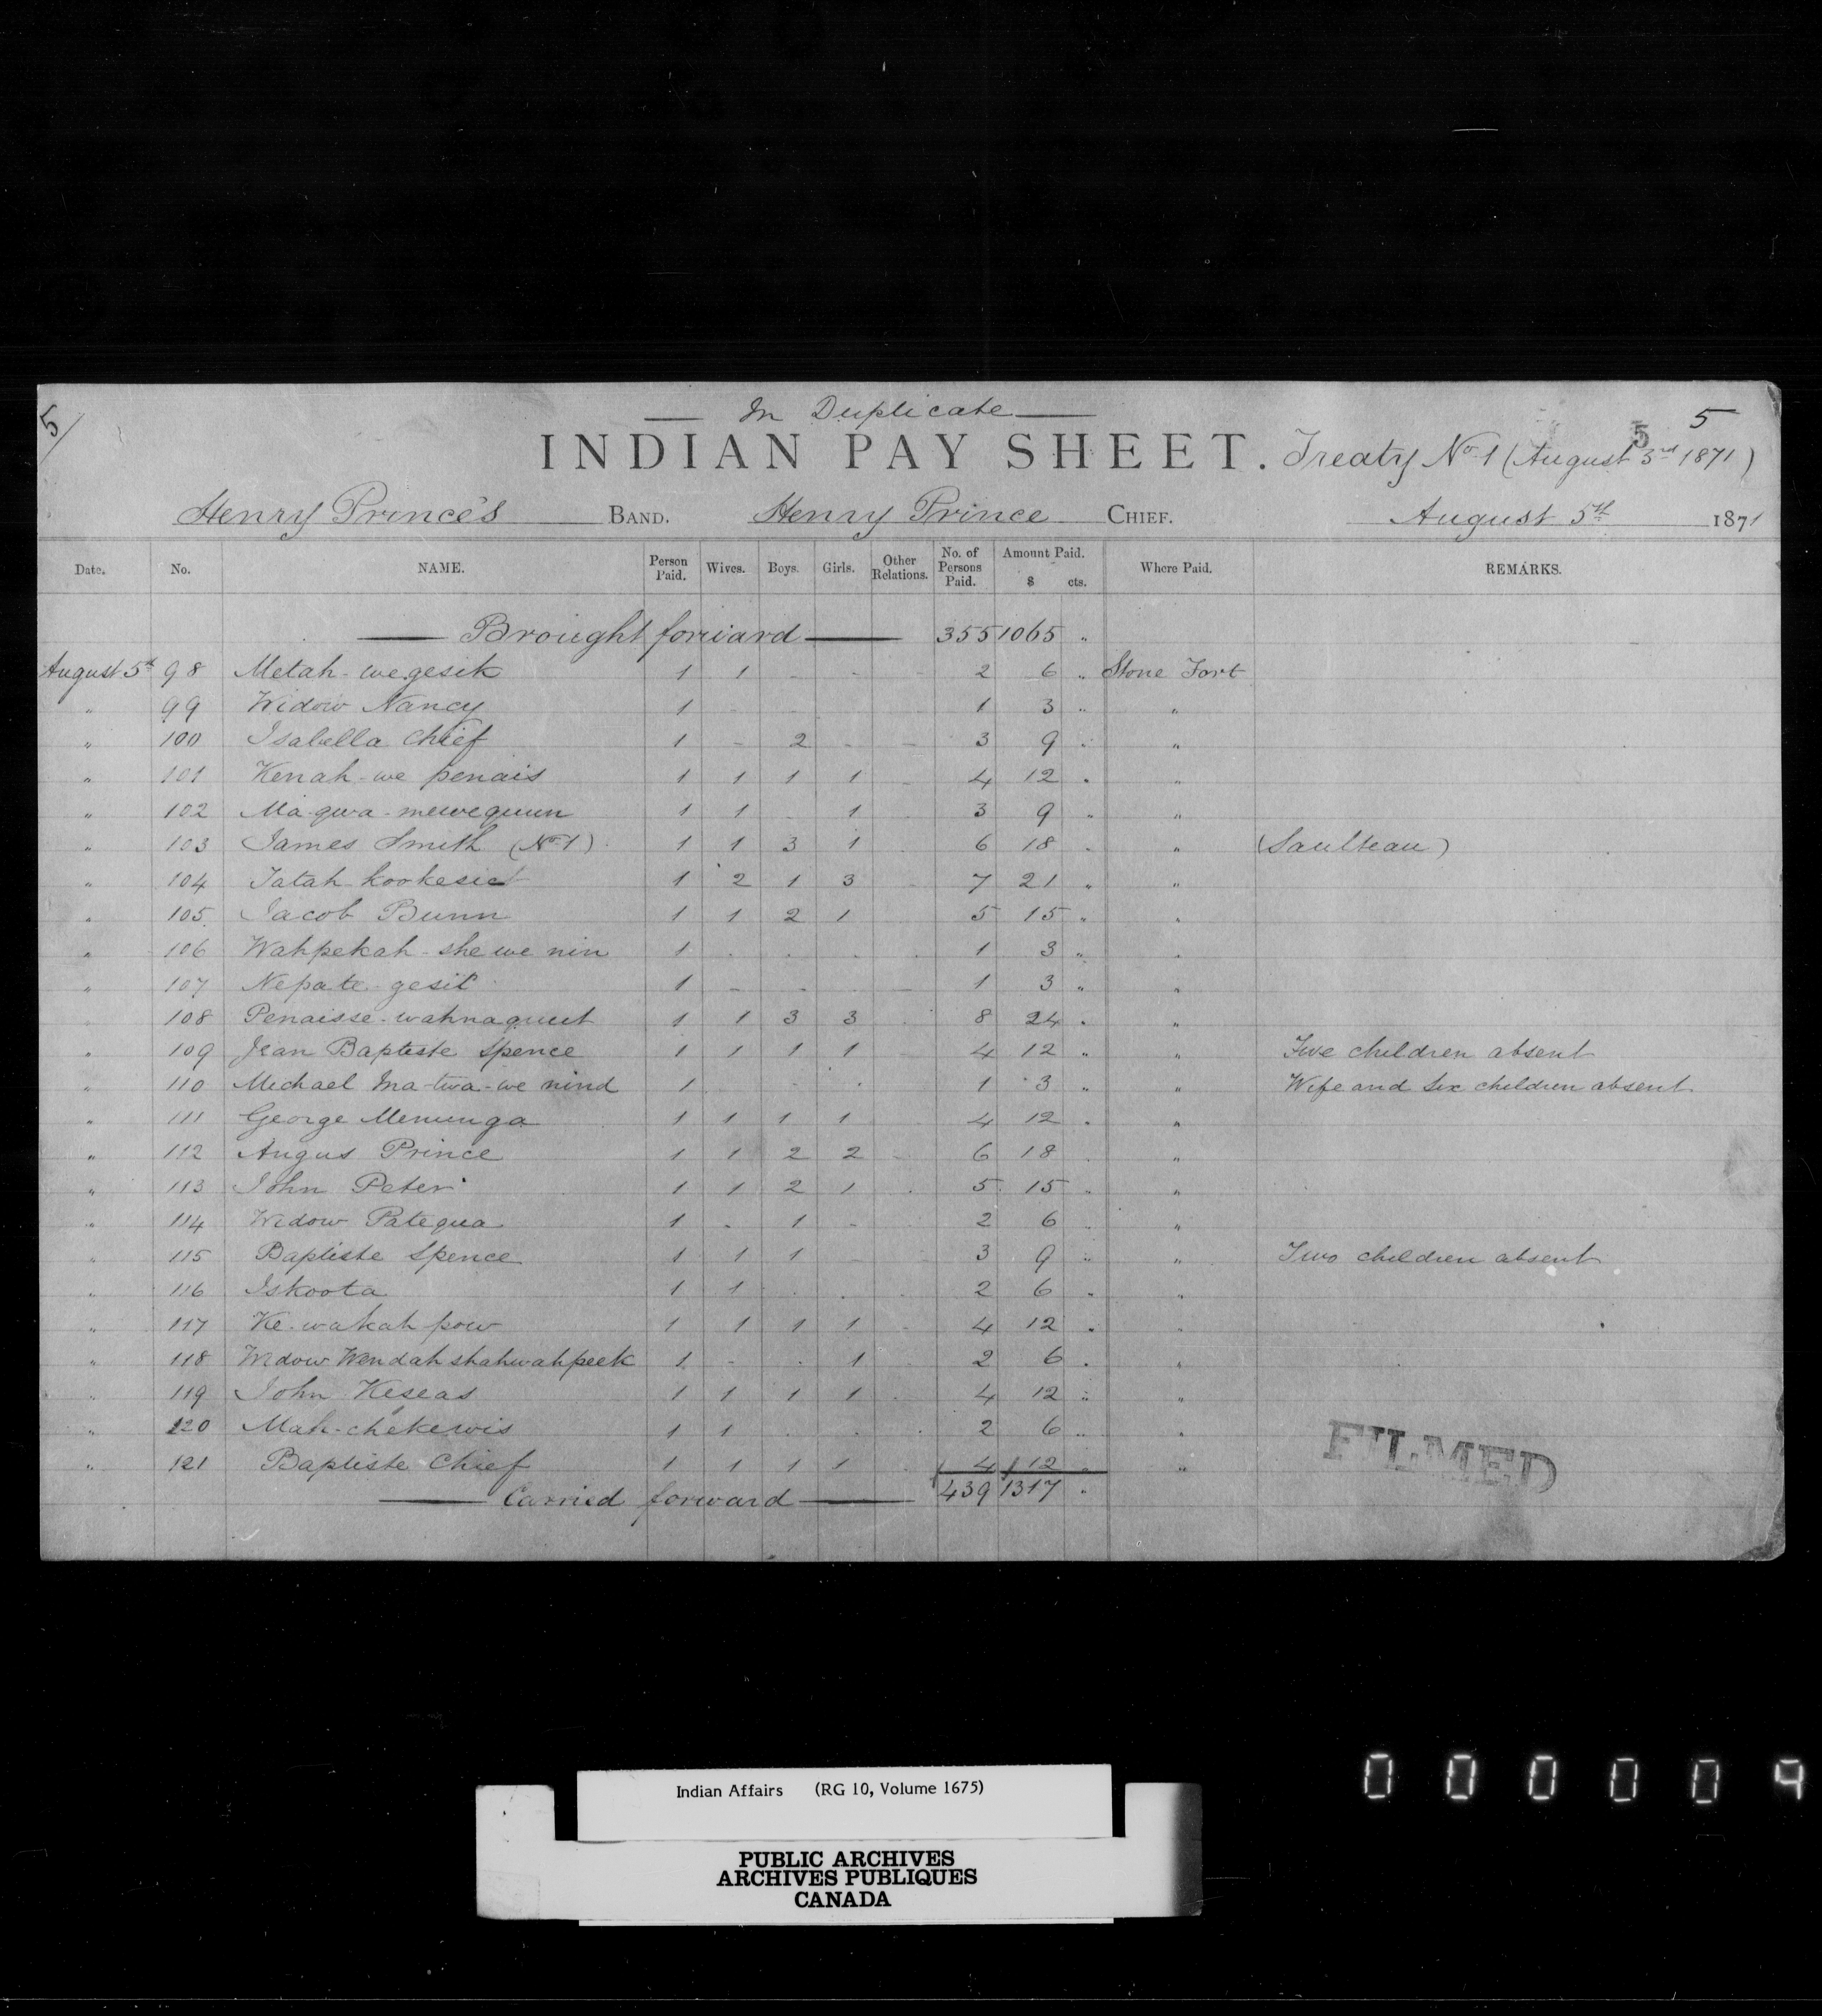 In Duplicate
5/
INDIAN PAY SHEET. Treaty No 1 (August 3rd 1871)
5 5
Henry Prince's BAND. Henry Prince CHIEF. August 5th 1871
Date. No. NAME. Person Paid. Wives. Boys. Girls. Other Relations. No. of Persons Paid. Amount Paid. $ cts. Where Paid. REMARKS.
Brought forward 355 1065 "
August 5th 98 Metah-we.gesik 1 1 - - - 2 6 " Stone Fort
" 99 Widow Nancy 1 - 1 3 " "
" 100 Isabella Chief 1 - 2 - - 3 9 " "
" 101 Kenah-we penais 1 1 1 1 - 4 12 " "
" 102 Ma-gwa-mewequun 1 1 - 1 3 9 " "
" 103 James Smith (No 1) 1 1 3 1 6 18 " " (Saulteau)
" 104 Tatah kookesict 1 2 1 3 7 21 " "
" 105 Jacob Bunn 1 1 2 1 5 15 " "
" 106 Wahpekah-she we nin 1 - - - - 1 3 " "
" 107 Nepate-gesit 1 - - - - 1 3 " "
108 Penaisse-wahnaquut 1 1 3 3 8 24 " "
" 109 Jean Baptiste Spence 1 1 1 1 4 12 " " Five children absent
" 110 Michael Ma-twa-we nind 1 - - - 1 3 " " Wife and six children absent.
" 111 George Menunga 1 1 1 1 4 12 " "
" 112 Angus Prince 1 1 2 2 - 6 18 "
" 113 John Peter 1 1 2 1 - 5 15 " "
" 114 Widow Patequa 1 - 1 - 2 6 "
" 115 Baptiste Spence 1 1 1 - 3 9 " " Two children absent
" 116 Iskoota 1 1 - - - 2 6 " "
" 117 Ke-wakah pow 1 1 1 1 - 4 12 " "
" 118 Widow Wendah shahwahpeek 1 - - 1 2 6 " "
" 119 John Keseas 1 1 1 1 - 4 12 " "
" 120 Mah-chekewis 1 1 - - - 2 6 " "
" 121 Baptiste Chief 1 1 1 1 4 12 " "
Carried forward 439 1317 "
FILMED
Indian Affairs (RG 10, Volume 1675)
PUBLIC ARCHIVES
ARCHIVES PUBLIQUES
CANADA
000009